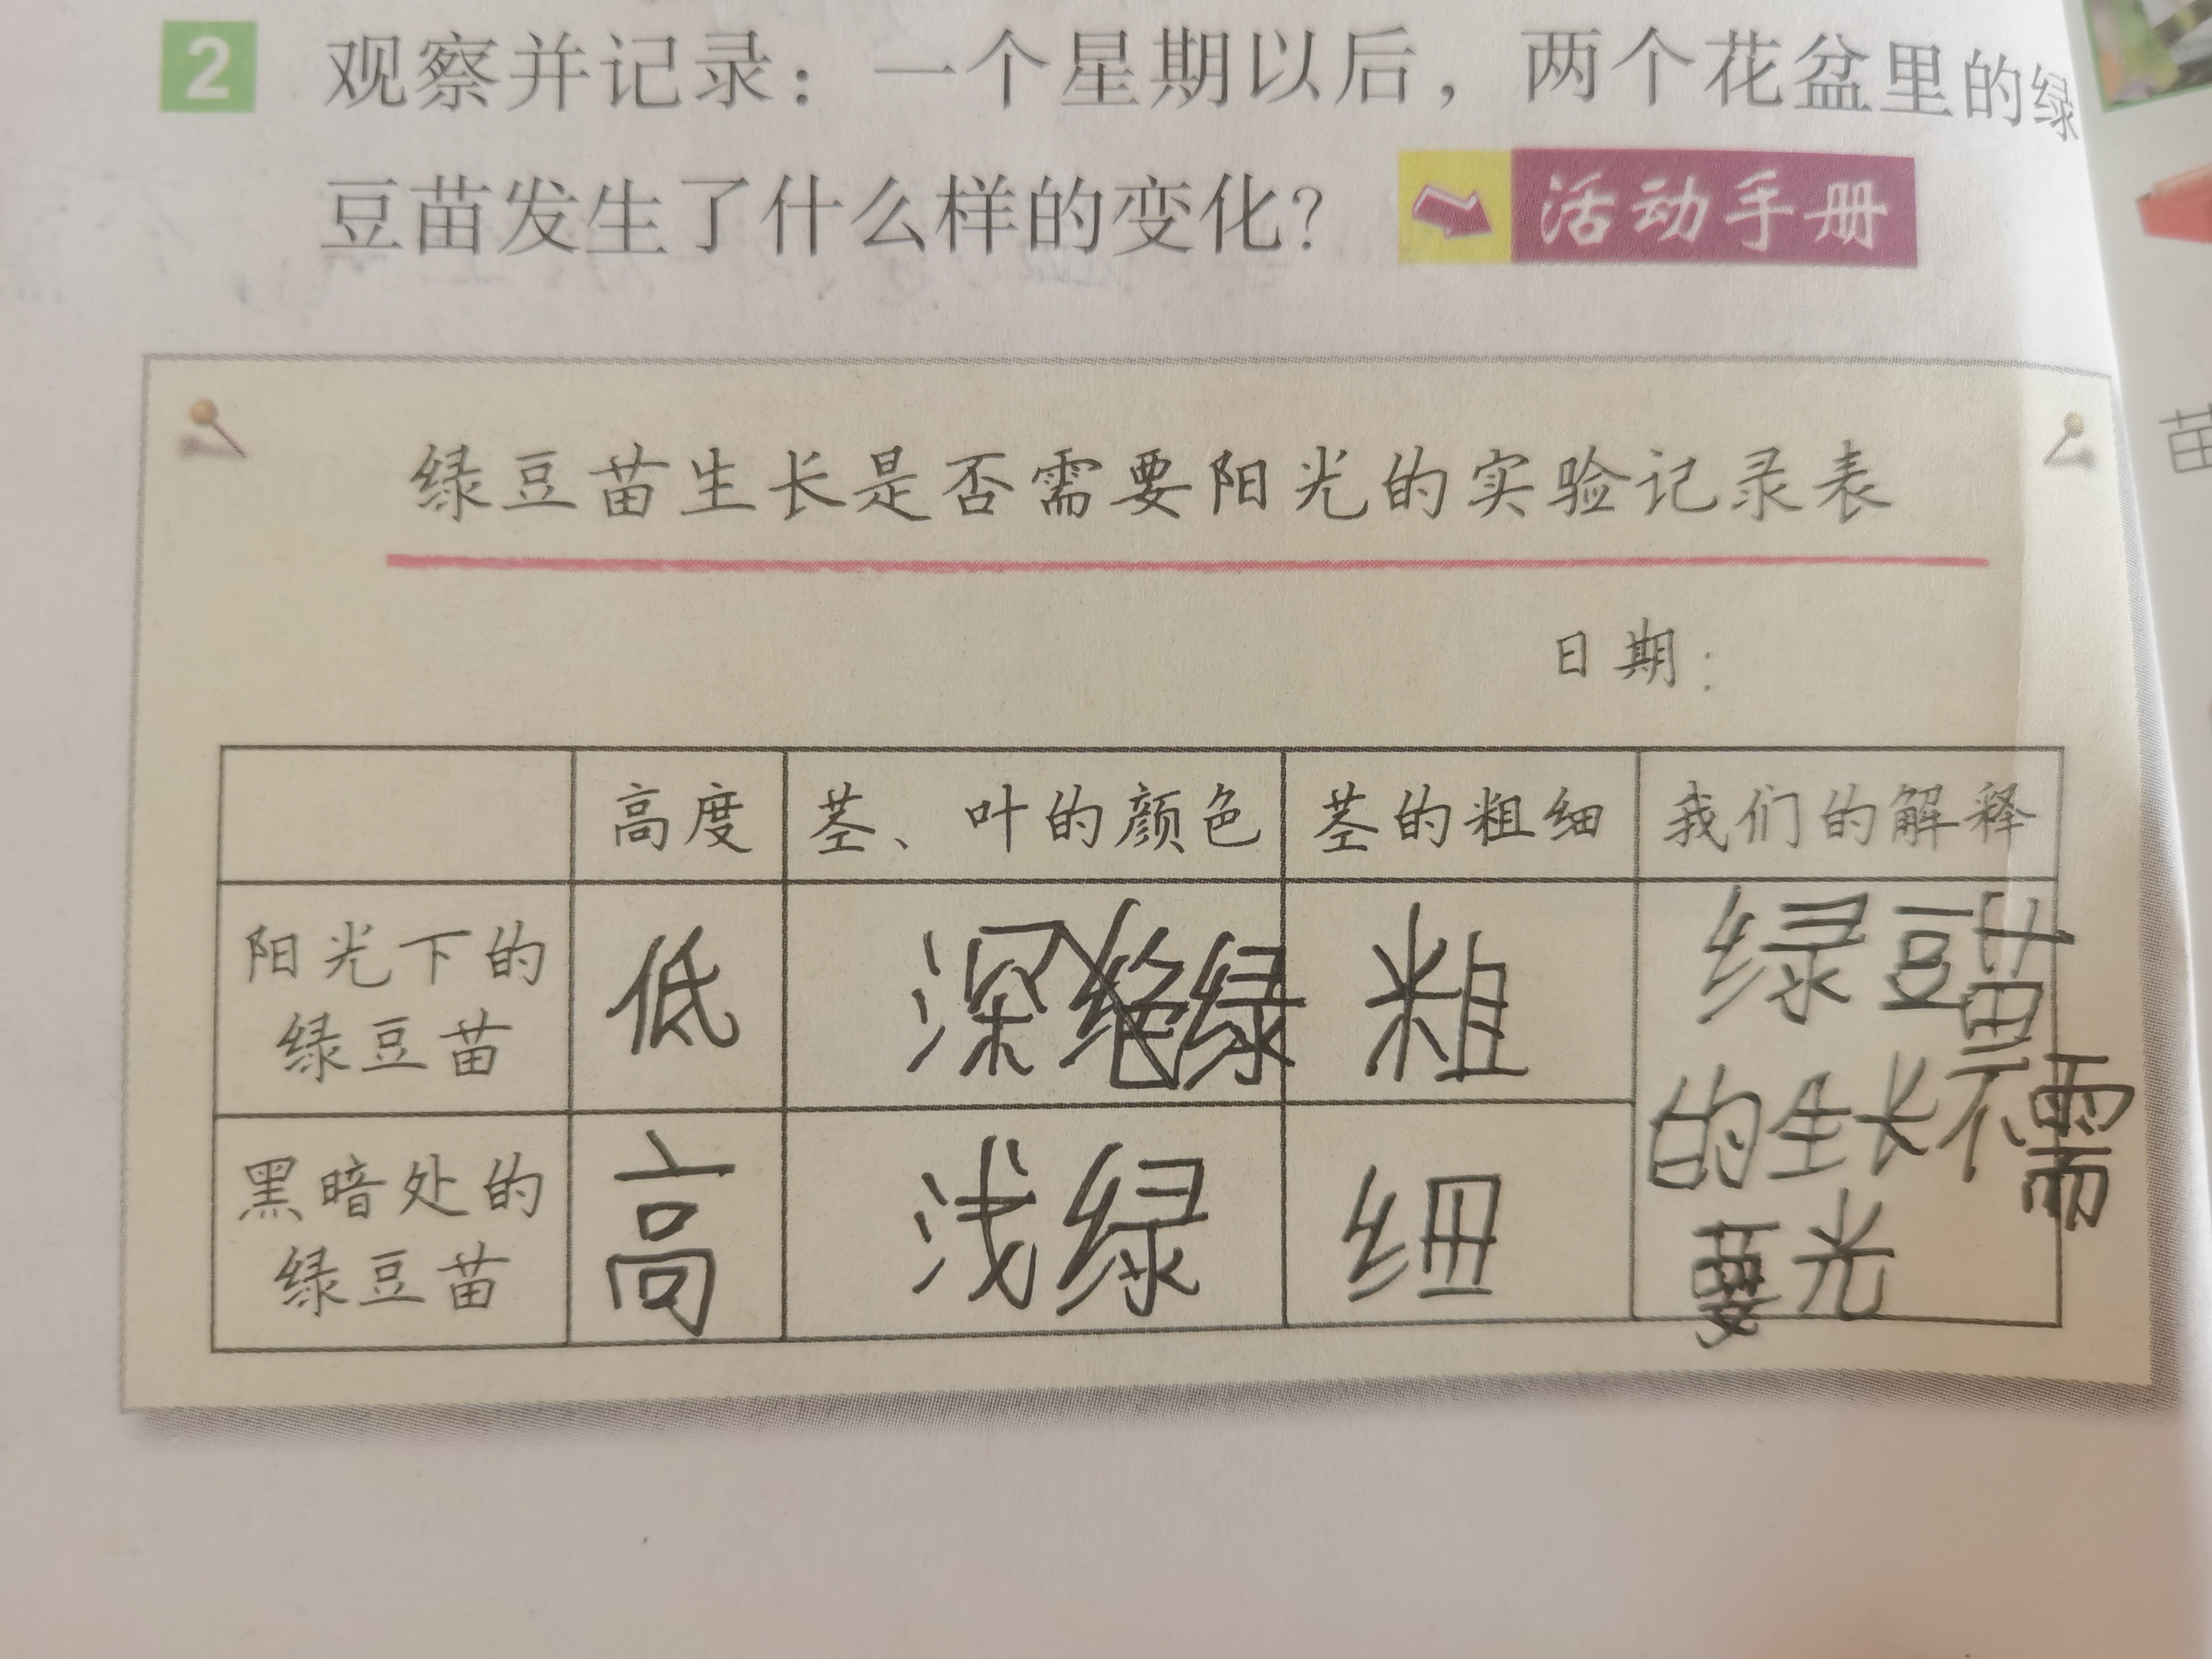 2 观察并记录：一个星期以后，两个花盆里的绿
豆苗发生了什么样的变化？ 活动手册
绿豆苗生长是否需要阳光的实验记录表
日期：
高度 茎、叶的颜色 茎的粗细 我们的解释
阳光下的
绿豆苗
低
深绿
粗
绿豆苗
的生长不需
要光
黑暗处的
绿豆苗
高
浅绿
细
苗